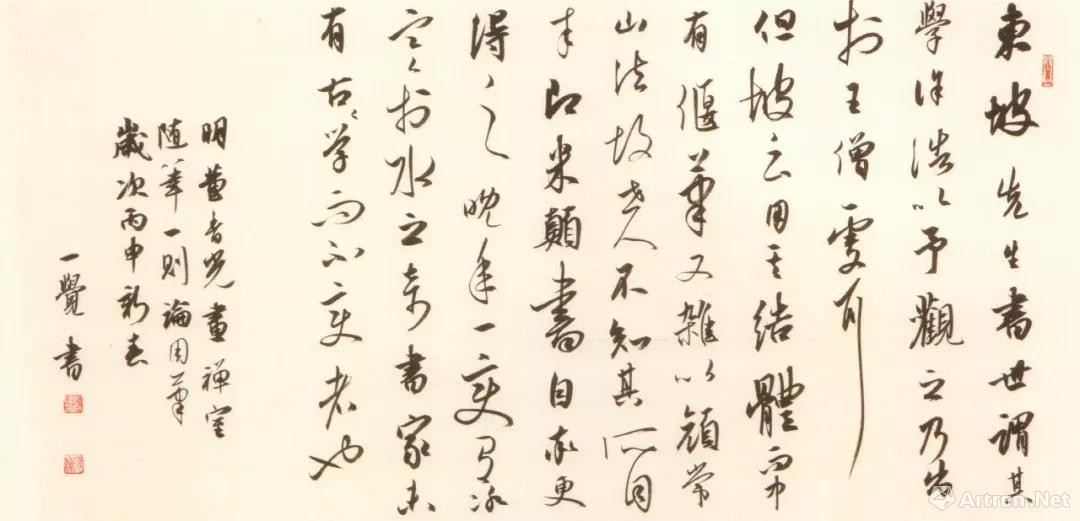 東坡先生書世謂其
學徐浩以予觀之乃出
於王僧虔耳
但坡公用其結體而中
有偃筆又雜以顏常
山法故世人不知其所自
来即米顛書自率更
得之晚年一変有冰
寒於水之奇書家未
有古学而不変者也
明董香光畫禪室
随筆一則論用筆
歲次丙申新春
一覺書
Artron.Net